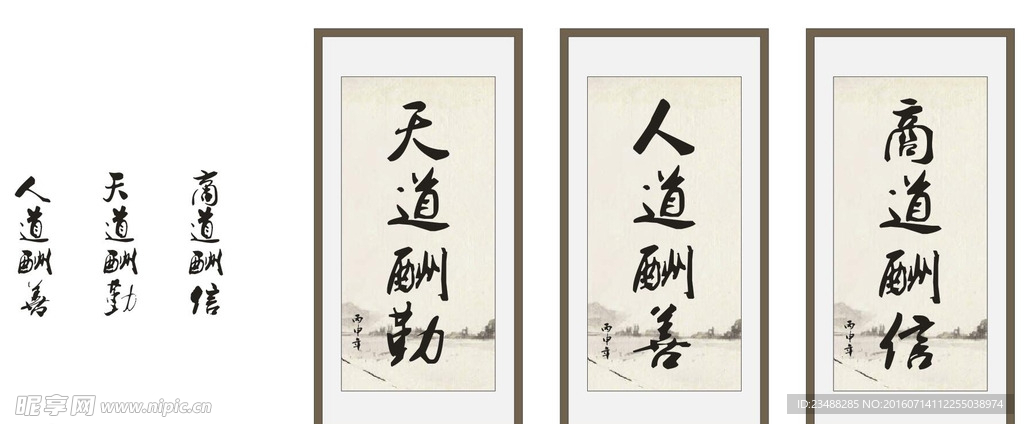 人道酬善
天道酬勤
商道酬信
天道酬勤
丙申年
人道酬善
丙申年
商道酬信
丙申年
昵享网 www.nipic.cn
ID:23488285 NO:20160714112255038974